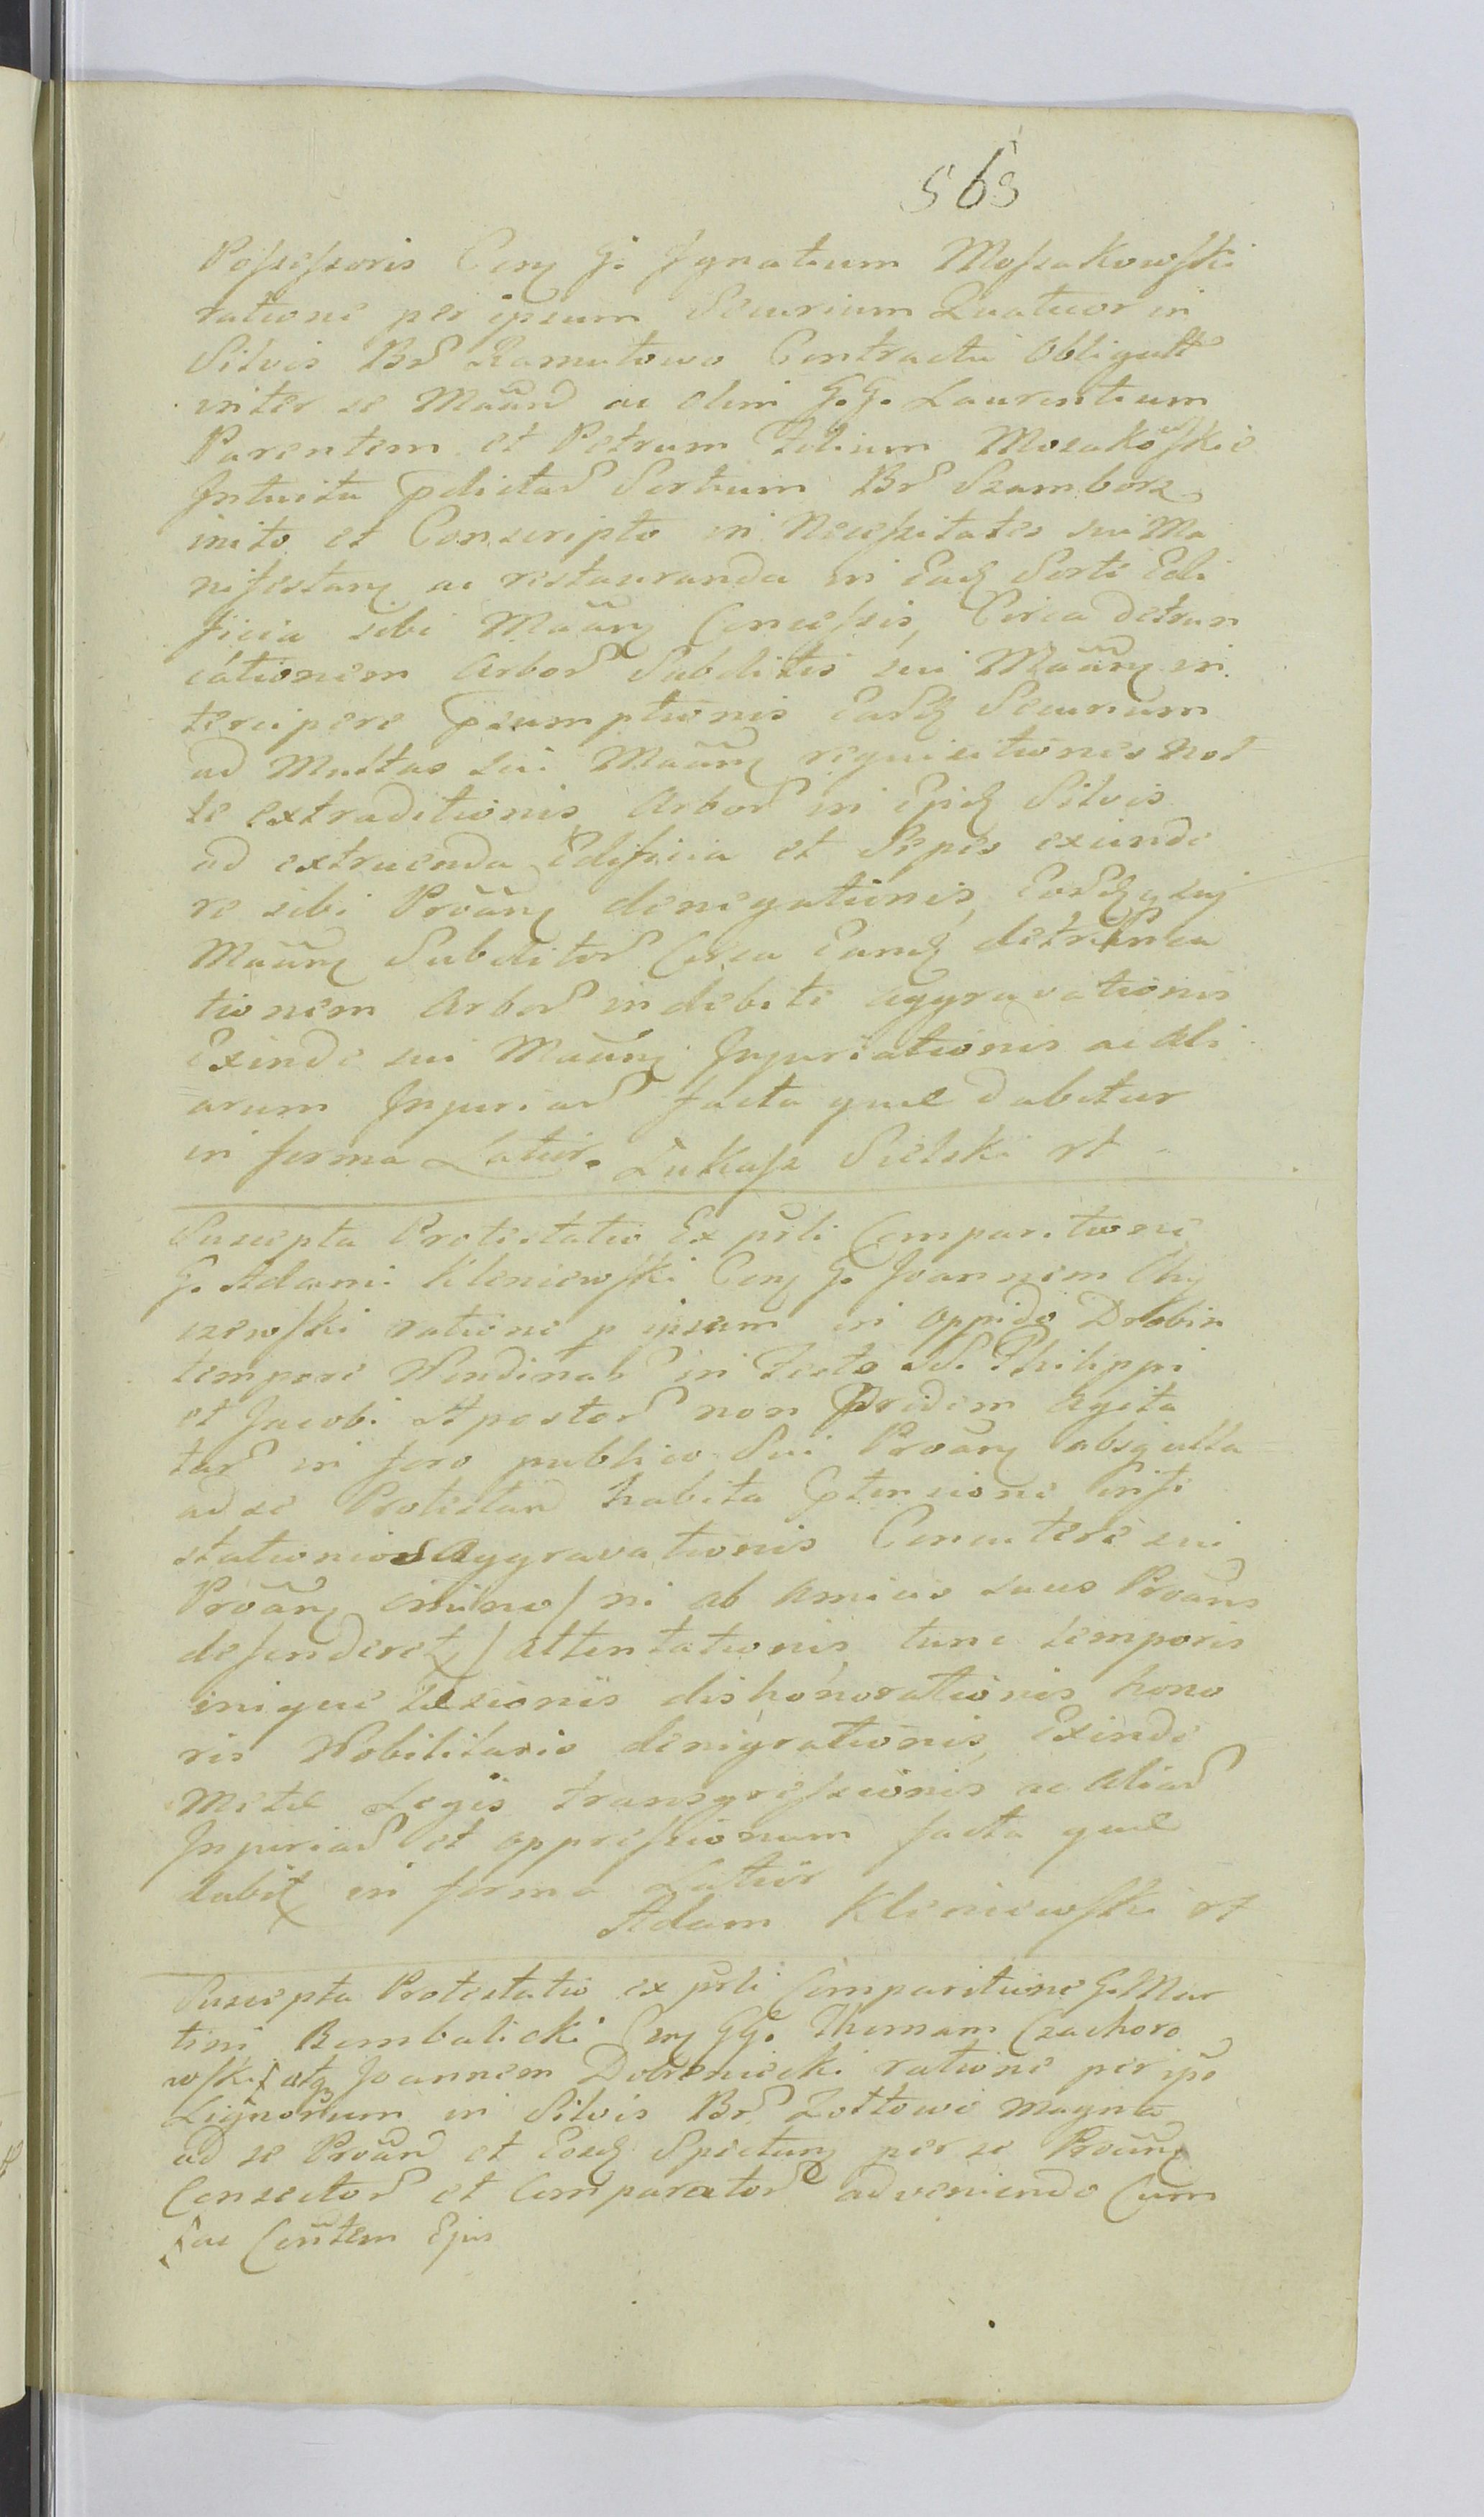 565
Possessoris Conq G. Ignatium Mossakowski
ratione per ipsum Securium Quatuor in
Silvis Br Ramutowo Contractu obligatt
inter se Maand ac olim G. G. Laurentium
Parentem et Petrum Filium Mosakowskie
Intuitu pdictar Sortium Br Szamborz
inito et Conscripto in Necessitates sui Ma
nifestanq ac restauranda in Eadq Sorte Edi
ficia sibi Maanq Concessis, Circa detrun
cationem Arbor Subditis sui Maanq in
tercipere psumptionis Eardq Securium
ad Multas sui Maanq requisitiones nol
le extraditionis Arbor in Epidq Silvis
ad extruenda Edificia et Sepes exciinde
re sibi Proanq denegationis, Eordq suj
Maanq Subditor Circa Eandq detrunca
tionem Arbor indebite aggravationis
Exinde sui Maanq Injuriationis ac ali
arum Injuriar facta quae dabitur
in forma Latior. Łukasz Sielski rt
Suscepta Protestatio Ex prsli Comparitione
G. Adami Kleniewski Conq G. Joannem Chy
czewski ratione p ipsum in oppido Drobin
tempore Nundinali in Festo SS. Philippi
et Jacobi Apostor non pridem agita
tar in foro publico Sui Proanq absq ulla
ad se Protestand habita ptensione, infe
stationis aggravationis Concutere sui
Proanq / ni ab amicis suus Proans
defenderetq / attentationis, tunc temporis
inique Laesionis dishonorationis, hono
ris Nobilitaris denigrationis, Exinde
Metae Legis transgressionis ac aliar
Injuriar et oppressionum facta quae
dabitq in forma Latior
Adam Kleniewski rt
Suscepta Protestatio ex prsli Comparitione G. Mar
tini Bembalicki Conq GG. Thomam Czachoro
wski atq Joannem Dobrsniecki ratione per ips
Lignorum in Silvis Br Zottowo Magna
ad se Proand et Eosdq Spectanq per se Proanq
Consector et Comparator adveniendo Cum
ac Contem Ejus